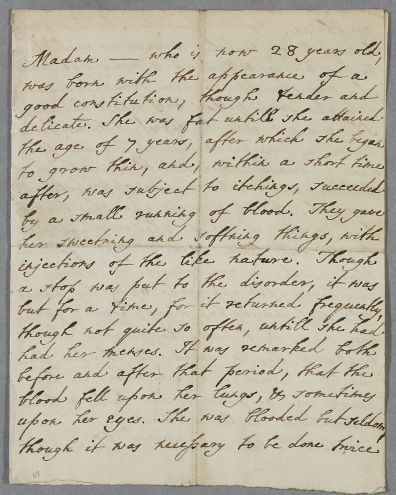 Madam — who is now 28 years old,
was born with the appearance of a
good constitution, though tender and
delicate. She was fat untill she attained
the age of 7 years, after which she began
to grow thin, and, within a short time
after, was subject to itchings, succeeded
by a small running of blood. They gave
her sweetning and softning things, with
injections of the like nature. Though
a stop was put to the disorder, it was
but for a time, for it returned frequently,
though not quite so often, untill she had
had her menses. It was remarked both
before and after that period, that the
blood fell upon her lungs, & sometimes
upon her eyes. She was blooded but seldom,
though it was necessary to be done twice